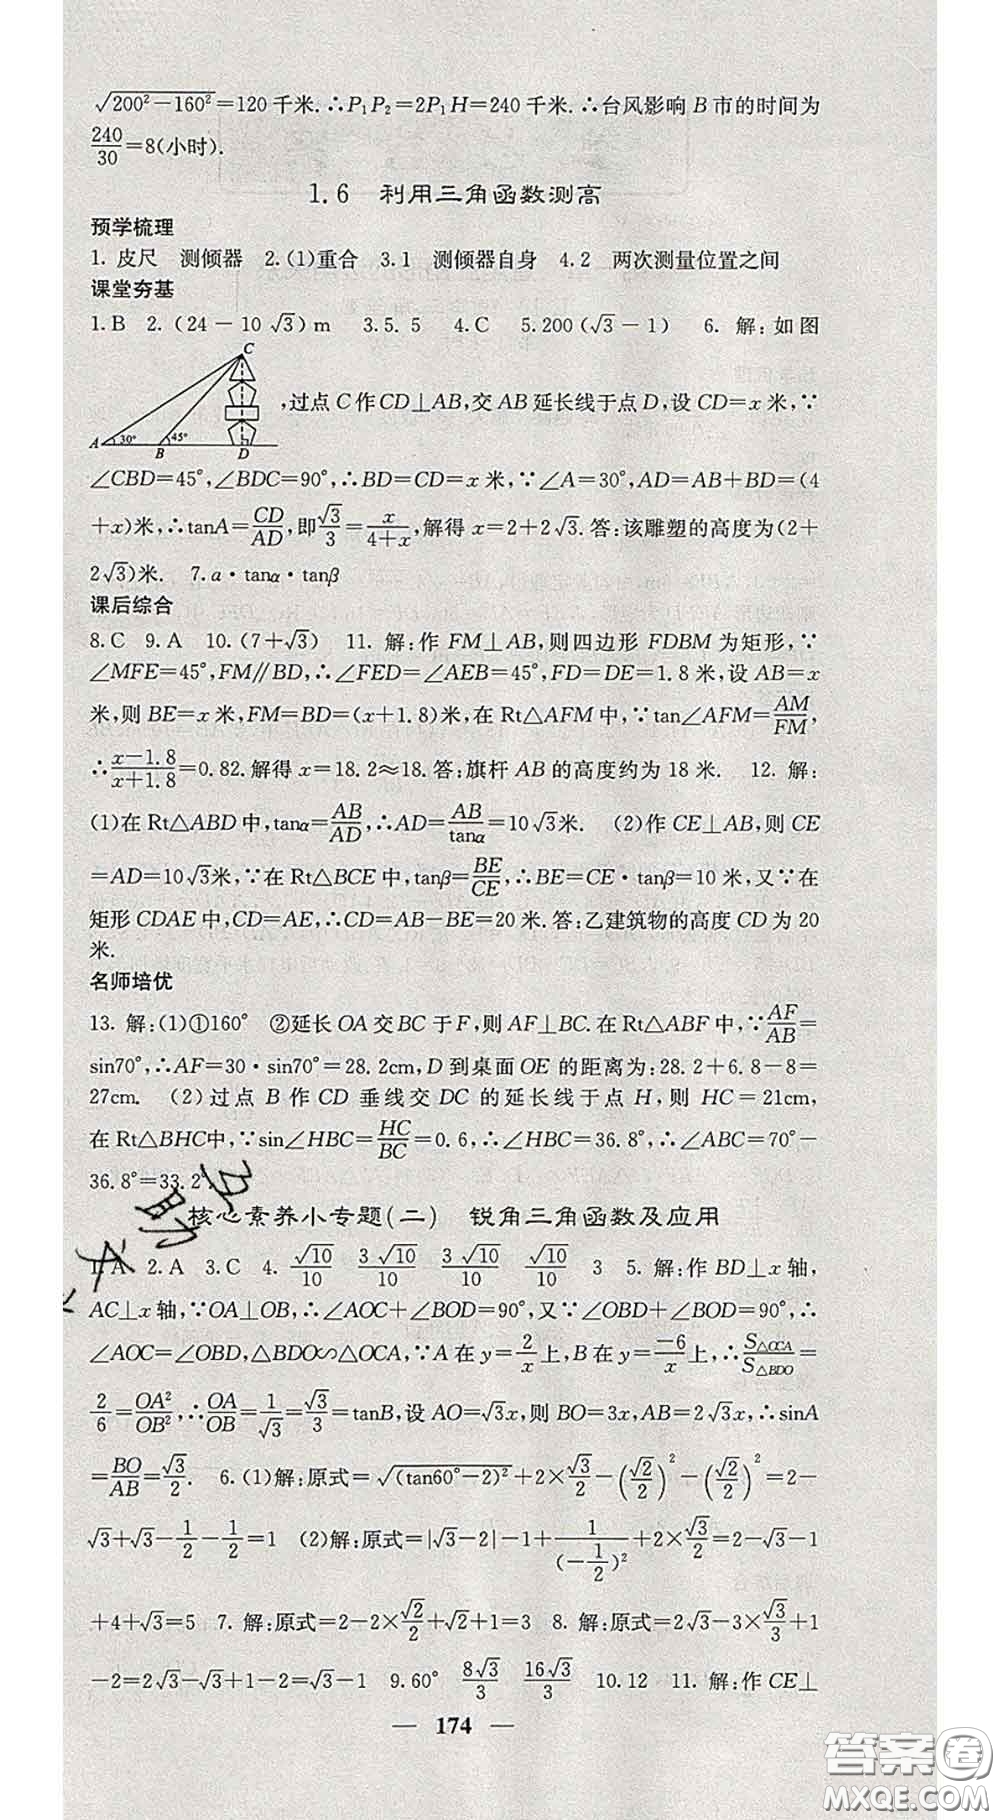 √(200²－160²)＝120 千米.∴P₁P₂＝2P₁H＝240 千米.∴台风影响 B 市的时间为
240/30＝8(小时).
1.6　利用三角函数测高
预学梳理
1. 皮尺　测倾器　2.(1)重合　3.1　测倾器自身　4.2　两次测量位置之间
课堂夯基
1.B　2.(24－10√3)m　3.5.5　4.C　5.200(√3－1)　6. 解:如图
C
A 30° B 45° D
,过点 C 作 CD⊥AB,交 AB 延长线于点 D,设 CD＝x 米,∵
∠CBD＝45°,∠BDC＝90°,∴BD＝CD＝x 米,∵∠A＝30°,AD＝AB＋BD＝(4
＋x)米,∴tanA＝CD/AD,即√3/3＝x/(4＋x),解得 x＝2＋2√3.答:该雕塑的高度为(2＋
2√3)米.　7.a·tanα·tanβ
课后综合
8.C　9.A　10.(7＋√3)　11. 解:作 FM⊥AB,则四边形 FDBM 为矩形,∵
∠MFE＝45°,FM∥BD,∴∠FED＝∠AEB＝45°,FD＝DE＝1.8 米,设 AB＝x
米,则 BE＝x 米,FM＝BD＝(x＋1.8)米,在 Rt△AFM 中,∵tan∠AFM＝AM/FM,
∴(x－1.8)/(x＋1.8)＝0.82.解得 x＝18.2≈18.答:旗杆 AB 的高度约为 18 米.　12. 解:
(1)在 Rt△ABD 中,tanα＝AB/AD,∴AD＝AB/tanα＝10√3米.　(2)作 CE⊥AB,则 CE
＝AD＝10√3米,∵在 Rt△BCE 中,tanβ＝BE/CE,∴BE＝CE·tanβ＝10 米,又∵在
矩形 CDAE 中,CD＝AE,∴CD＝AB－BE＝20 米.答:乙建筑物的高度 CD 为 20
米.
名师培优
13. 解:(1)①160°　②延长 OA 交 BC 于 F,则 AF⊥BC.在 Rt△ABF 中,∵AF/AB＝
sin70°,∴AF＝30·sin70°＝28.2cm,D 到桌面 OE 的距离为:28.2＋6.8－8＝
27cm.　(2)过点 B 作 CD 垂线交 DC 的延长线于点 H,则 HC＝21cm,
在 Rt△BHC中,∵sin∠HBC＝HC/BC＝0.6,∴∠HBC＝36.8°,∴∠ABC＝70°－
36.8°＝33.2°.
核心素养小专题(二)　锐角三角函数及应用
1.A　2.A　3.C　4. √10/10　3√10/10　3√10/10　√10/10　3　5. 解:作 BD⊥x 轴,
AC⊥x 轴,∵OA⊥OB,∴∠AOC＋∠BOD＝90°,又∵∠OBD＋∠BOD＝90°,∴
∠AOC＝∠OBD,△BDO∽△OCA,∵A 在 y＝2/x上,B在 y＝－6/x上,∴S△OCA/S△BDO＝
2/6＝OA²/OB²,∴OA/OB＝1/√3＝√3/3＝tanB,设 AO＝√3x,则 BO＝3x,AB＝2√3x,∴sinA
＝BO/AB＝√3/2.　6.(1)解:原式＝√(tan60°－2)²＋2×√3/2－(√2/2)²－(√2/2)²＝2－
√3＋√3－1/2－1/2＝1　(2)解:原式＝|√3－2|－1＋1/(－1/2)²＋2×√3/2＝2－√3－1
＋4＋√3＝5　7. 解:原式＝2－2×√2/2＋√2＋1＝3　8. 解:原式＝2√3－3×√3/3＋1
－2＝2√3－√3＋1－2＝√3－1　9.60°　8√3/3　16√3/3　10.12　11. 解:作 CE⊥
— 174 —
答案卷
MXQE.COM